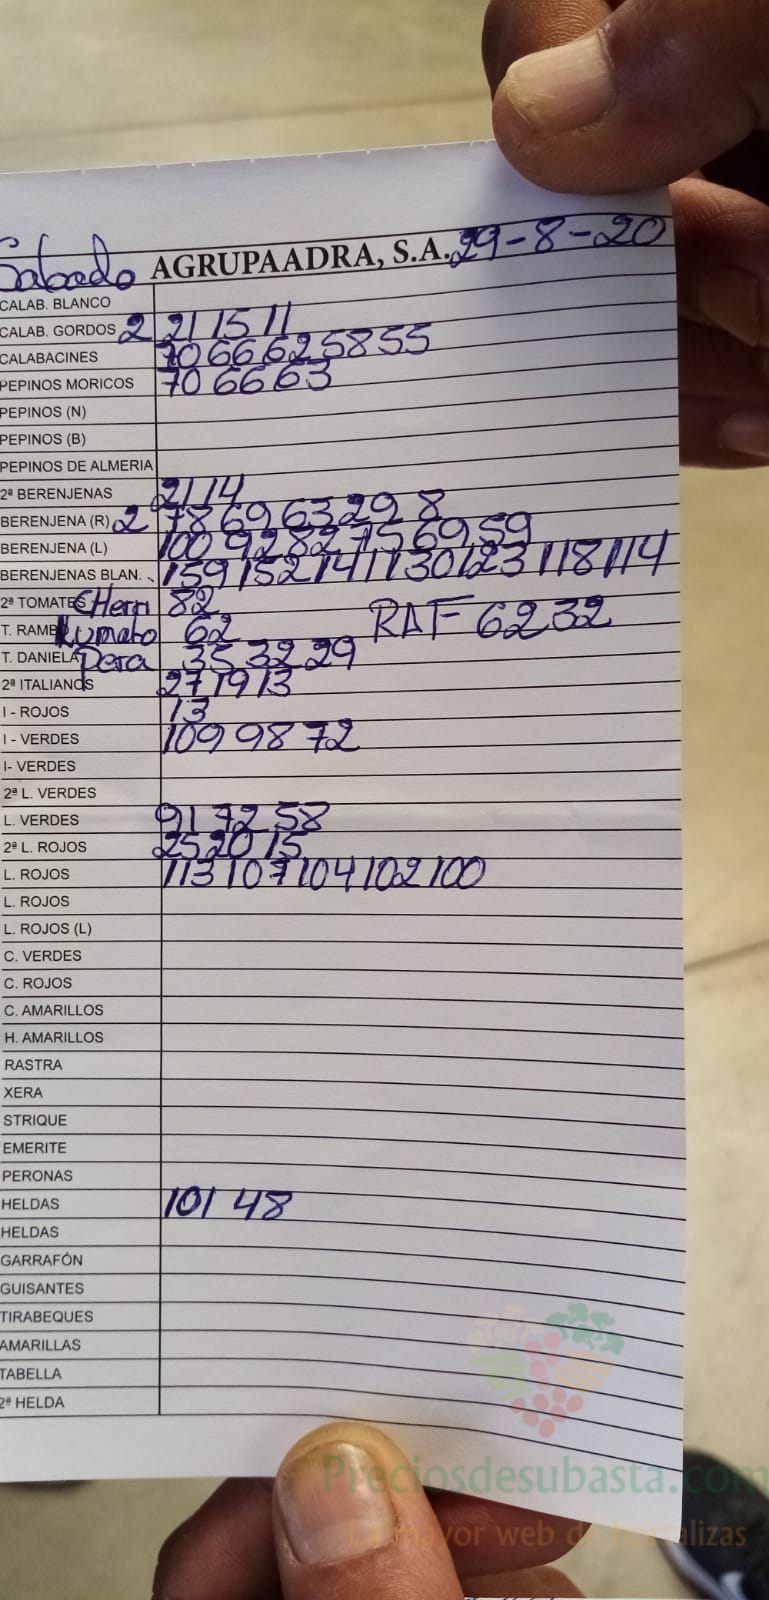 Sabado AGRUPAADRA, S.A. 29-8-20
CALAB. BLANCO
CALAB. GORDOS 2 21 15 11
CALABACINES 70 66 62 58 55
PEPINOS MORICOS 70 66 63
PEPINOS (N)
PEPINOS (B)
PEPINOS DE ALMERIA
2ª BERENJENAS 21 14
BERENJENA (R) 2 78 69 63 29 8
BERENJENA (L) 100 92 82 75 69 59
BERENJENAS BLAN. 159 152 141 130 123 118 114
2ª TOMATES CHerri 82
T. RAMB Kumato 62 RAF 62 32
T. DANIELA Pera 35 32 29
2ª ITALIANOS 27 19 13
I - ROJOS 13
I - VERDES 109 98 72
I- VERDES
2ª L. VERDES
L. VERDES 91 72 58
2ª L. ROJOS 25 20 15
L. ROJOS 113 107 104 102 100
L. ROJOS
L. ROJOS (L)
C. VERDES
C. ROJOS
C. AMARILLOS
H. AMARILLOS
RASTRA
XERA
STRIQUE
EMERITE
PERONAS
HELDAS 101 48
HELDAS
GARRAFÓN
GUISANTES
TIRABEQUES
AMARILLAS
TABELLA
2ª HELDA
Preciosdesubasta.com
La mayor web de hortalizas